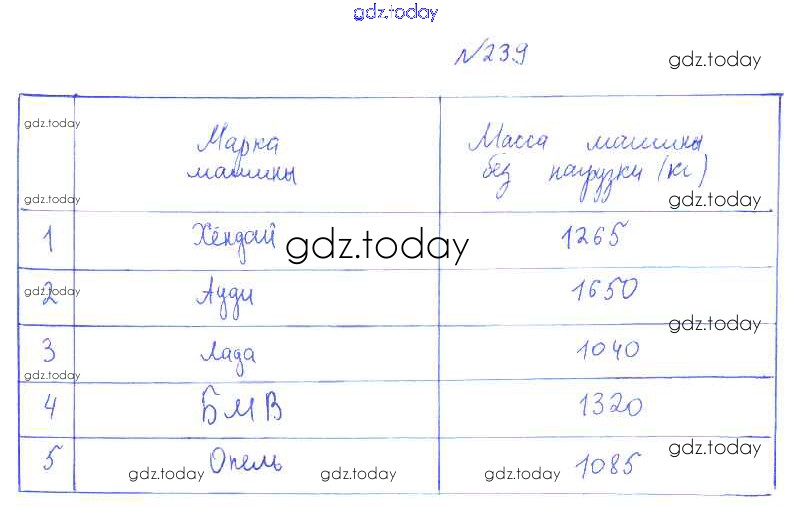 gdz.today
№239
gdz.today
gdz.today
Марка
машины
Масса машины
без нагрузки (кг)
gdz.today
gdz.today
1 Хёндай 1265
gdz.today
2 Ауди 1650
gdz.today
gdz.today
3 Лада 1040
gdz.today
4 БМВ 1320
5 Опель 1085
gdz.today
gdz.today
gdz.today
gdz.today